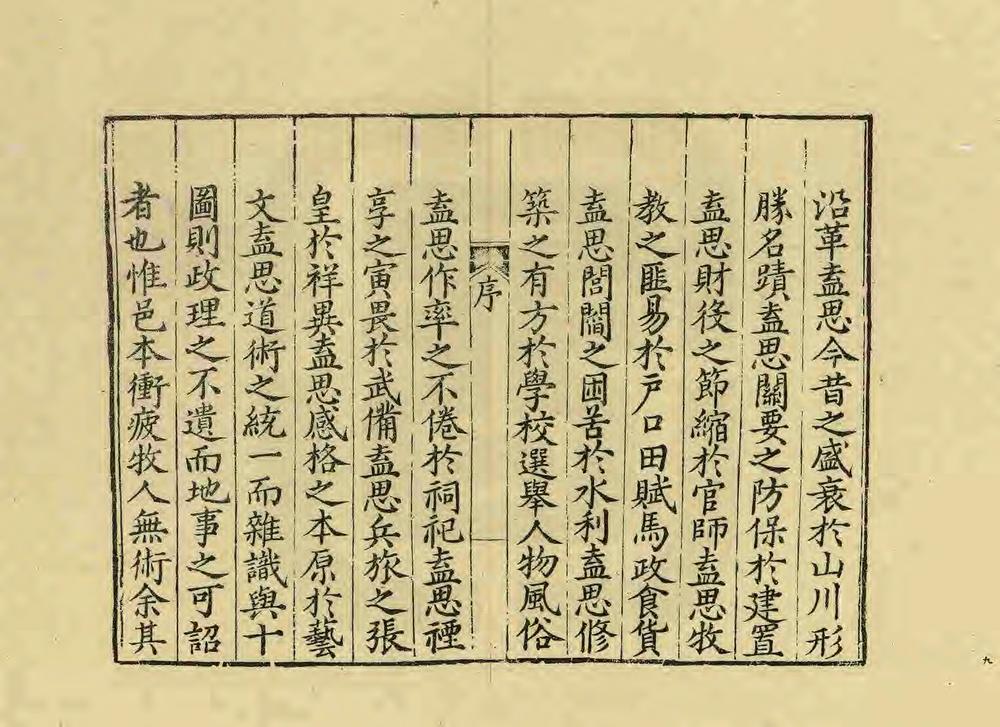 沿革盍思今昔之盛衰於山川形
勝名蹟盍思關要之防保於建置
盍思財役之節縮於官師盍思牧
教之匪易於戶口田賦馬政食貨
盍思閭閻之困苦於水利盍思修
築之有方於學校選舉人物風俗
序
盍思作率之不倦於祠祀盍思禋
享之寅畏於武備盍思兵旅之張
皇於祥異盍思感格之本原於藝
文盍思道術之統一而雜識與十
圖則政理之不遺而地事之可詔
者也惟邑本衝疲牧人無術余其
九